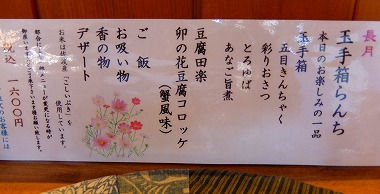 長月
玉手箱らんち
本日のお楽しみの一品
玉手箱
五目きんちゃく
彩りおさつ
とろゆば
あなご旨煮
豆腐田楽
卯の花豆腐コロッケ
(蟹風味)
ご飯
お吸い物
香の物
デザート
お米は佐渡産「こしいぶき」を
使用しています。
税込 一六〇〇円